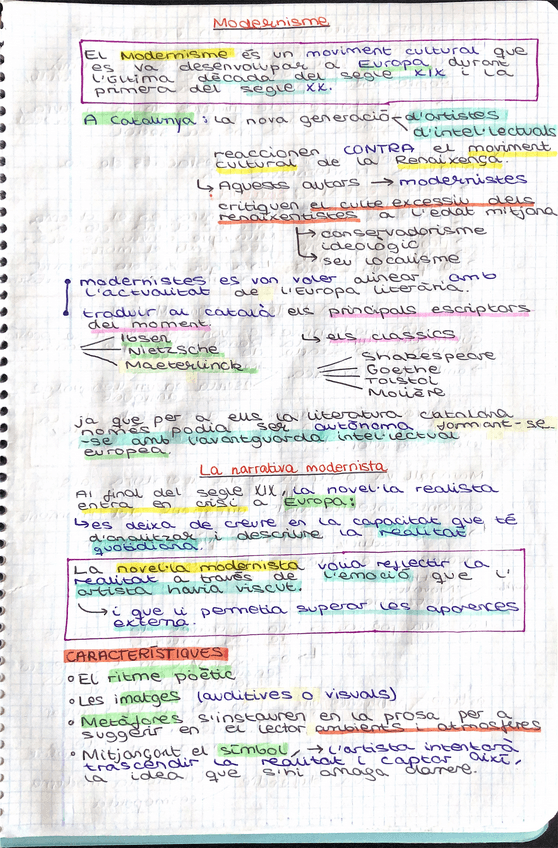 Modernisme
El Modernisme és un moviment cultural que
es va desenvolupar a Europa durant
l'última dècada del segle XIX i la
primera del segle XX.
A Catalunya: la nova generació d'artistes
d'intel·lectuals
reaccionen CONTRA el moviment
cultural de la Renaixença.
↳ Aquests autors → modernistes
critiquen el culte excessiu dels
renaixentistes a l'edat mitjana
→ conservadorisme
ideològic
→ seu localisme
modernistes es van voler alinear amb
l'actualitat de l'Europa literària.
traduir al català els principals escriptors
del moment
Ibsen
Nietzsche
Maeterlinck
↳ els clàssics
Shakespeare
Goethe
Tolstoi
Molière
ja que per a ells la literatura catalana
només podia ser autònoma formant-se
-se amb l'avantguarda intel·lectual
europea.
La narrativa modernista
Al final del segle XIX, la novel·la realista
entra en crisi a Europa:
↳ es deixa de creure en la capacitat que té
d'analitzar i descriure la realitat
quotidiana.
La novel·la modernista volia reflectir la
realitat a través de l'emoció que l'
artista havia viscut.
→ i que li permetia superar les aparences
externa.
CARACTERÍSTIQUES
• El ritme poètic
• Les imatges (auditives o visuals)
• Metàfores s'instauren en la prosa per a
suggerir en el lector ambients i atmosferes
• Mitjançant el símbol, → l'artista intentarà
trascendir la realitat i captar així,
la idea que s'hi amaga darrere.